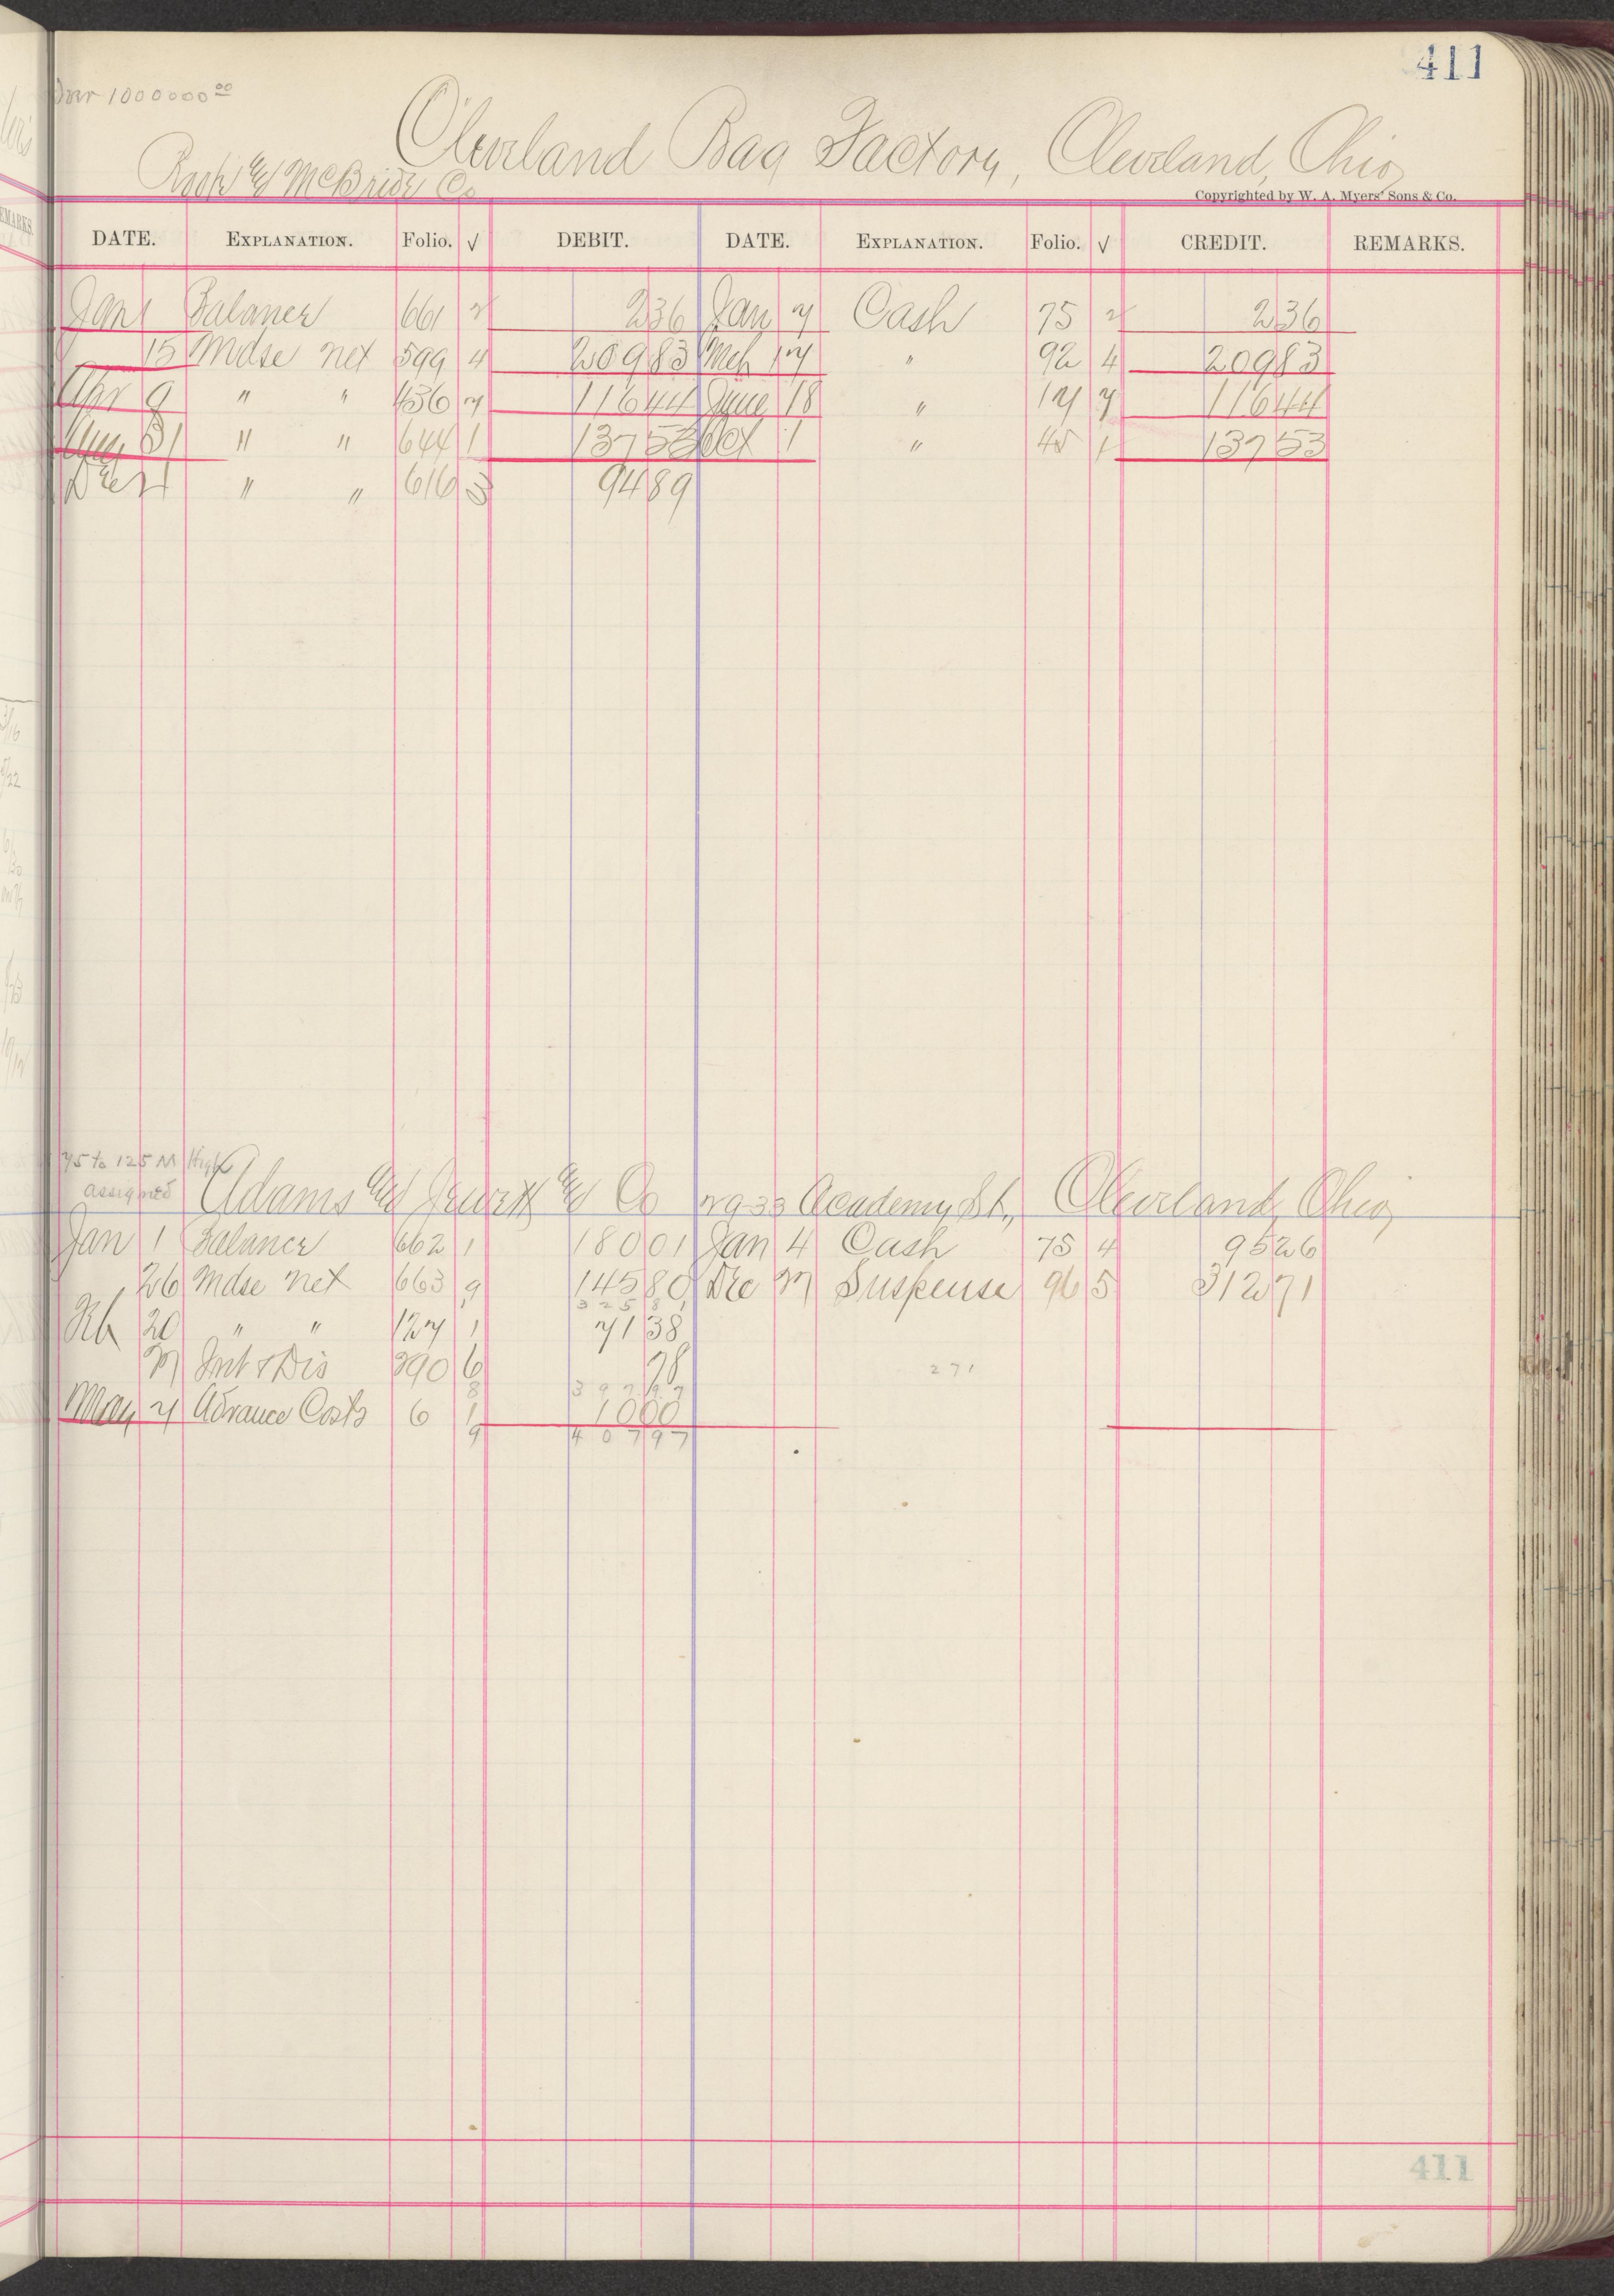 411
Over 1000000 00
Cleveland Bag Factory, Cleveland, Ohio
Root & McBride Co
Copyrighted by W. A. Myers' Sons & Co.
DATE. EXPLANATION. Folio. √ DEBIT. DATE. EXPLANATION. Folio. √ CREDIT. REMARKS.
Jan 1 Balance 661 2 236 Jan 7 Cash 75 2 236
15 Mdse net 599 4 20983 Mch 17 " 92 4 20983
Apr 9 " " 436 7 11644 June 18 " 121 7 11644
Aug 31 " " 644 1 13753 Oct 1 " 45 1 13753
Dec 21 " " 616 3 9489
75 to 125 M High
assigned
Adams & Jewett & Co 29-33 Academy St., Cleveland, Ohio,
Jan 1 Balance 662 1 18001 Jan 4 Cash 75 4 9526
26 Mdse net 663 9 14580 Dec 31 Suspense 96 5 31271
32581
Feb 20 " " 127 1 7138
27 Int & Dis 390 6 78
271
8 39797
May 7 Advance Costs 6 1 1000
9 40797
411